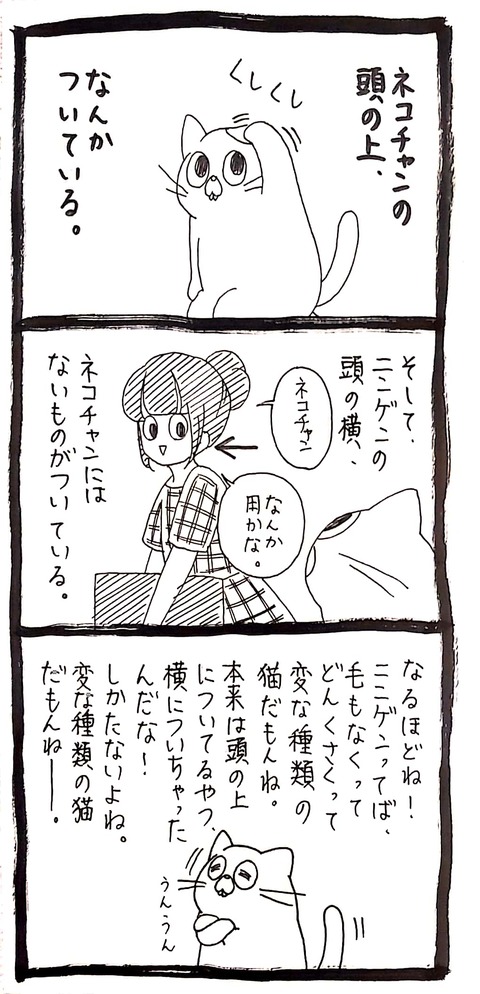 ネコチャンの
頭の上、
くしくし
なんか
ついている。
そして、
ニンゲンの
頭の横、
ネコチャン
なんか
用かな。
ネコチャンには
ないものがついている。
なるほどね!
ニンゲンってば、
毛もなくって
どんくさくって
変な種類の
猫だもんね。
本来は頭の上
についてるやつ、
横についちゃった
んだな!
しかたないよね。
変な種類の猫
だもんねー。
うんうん